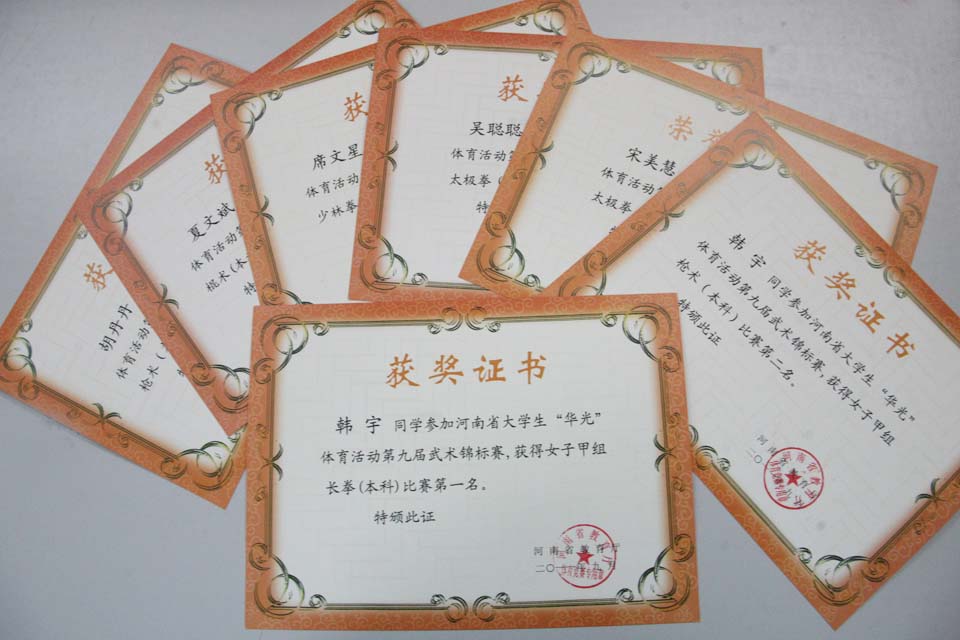 获
胡丹丹
体育活动
枪术（
获
夏文斌
体育活动第
棍术(本
特
获
席文星
体育活动
少林拳
获
吴聪聪
体育活动第
太极拳（
特
荣
宋美慧
体育活动
太极拳
获奖证书
韩宇 同学参加河南省大学生“华光”
体育活动第九届武术锦标赛，获得女子甲组
枪术（本科）比赛第二名。
特颁此证
获奖证书
韩宇 同学参加河南省大学生“华光”
体育活动第九届武术锦标赛，获得女子甲组
长拳(本科)比赛第一名。
特颁此证
河南省教育厅
二〇一 年九月
河南省教育厅
体育竞赛专用章